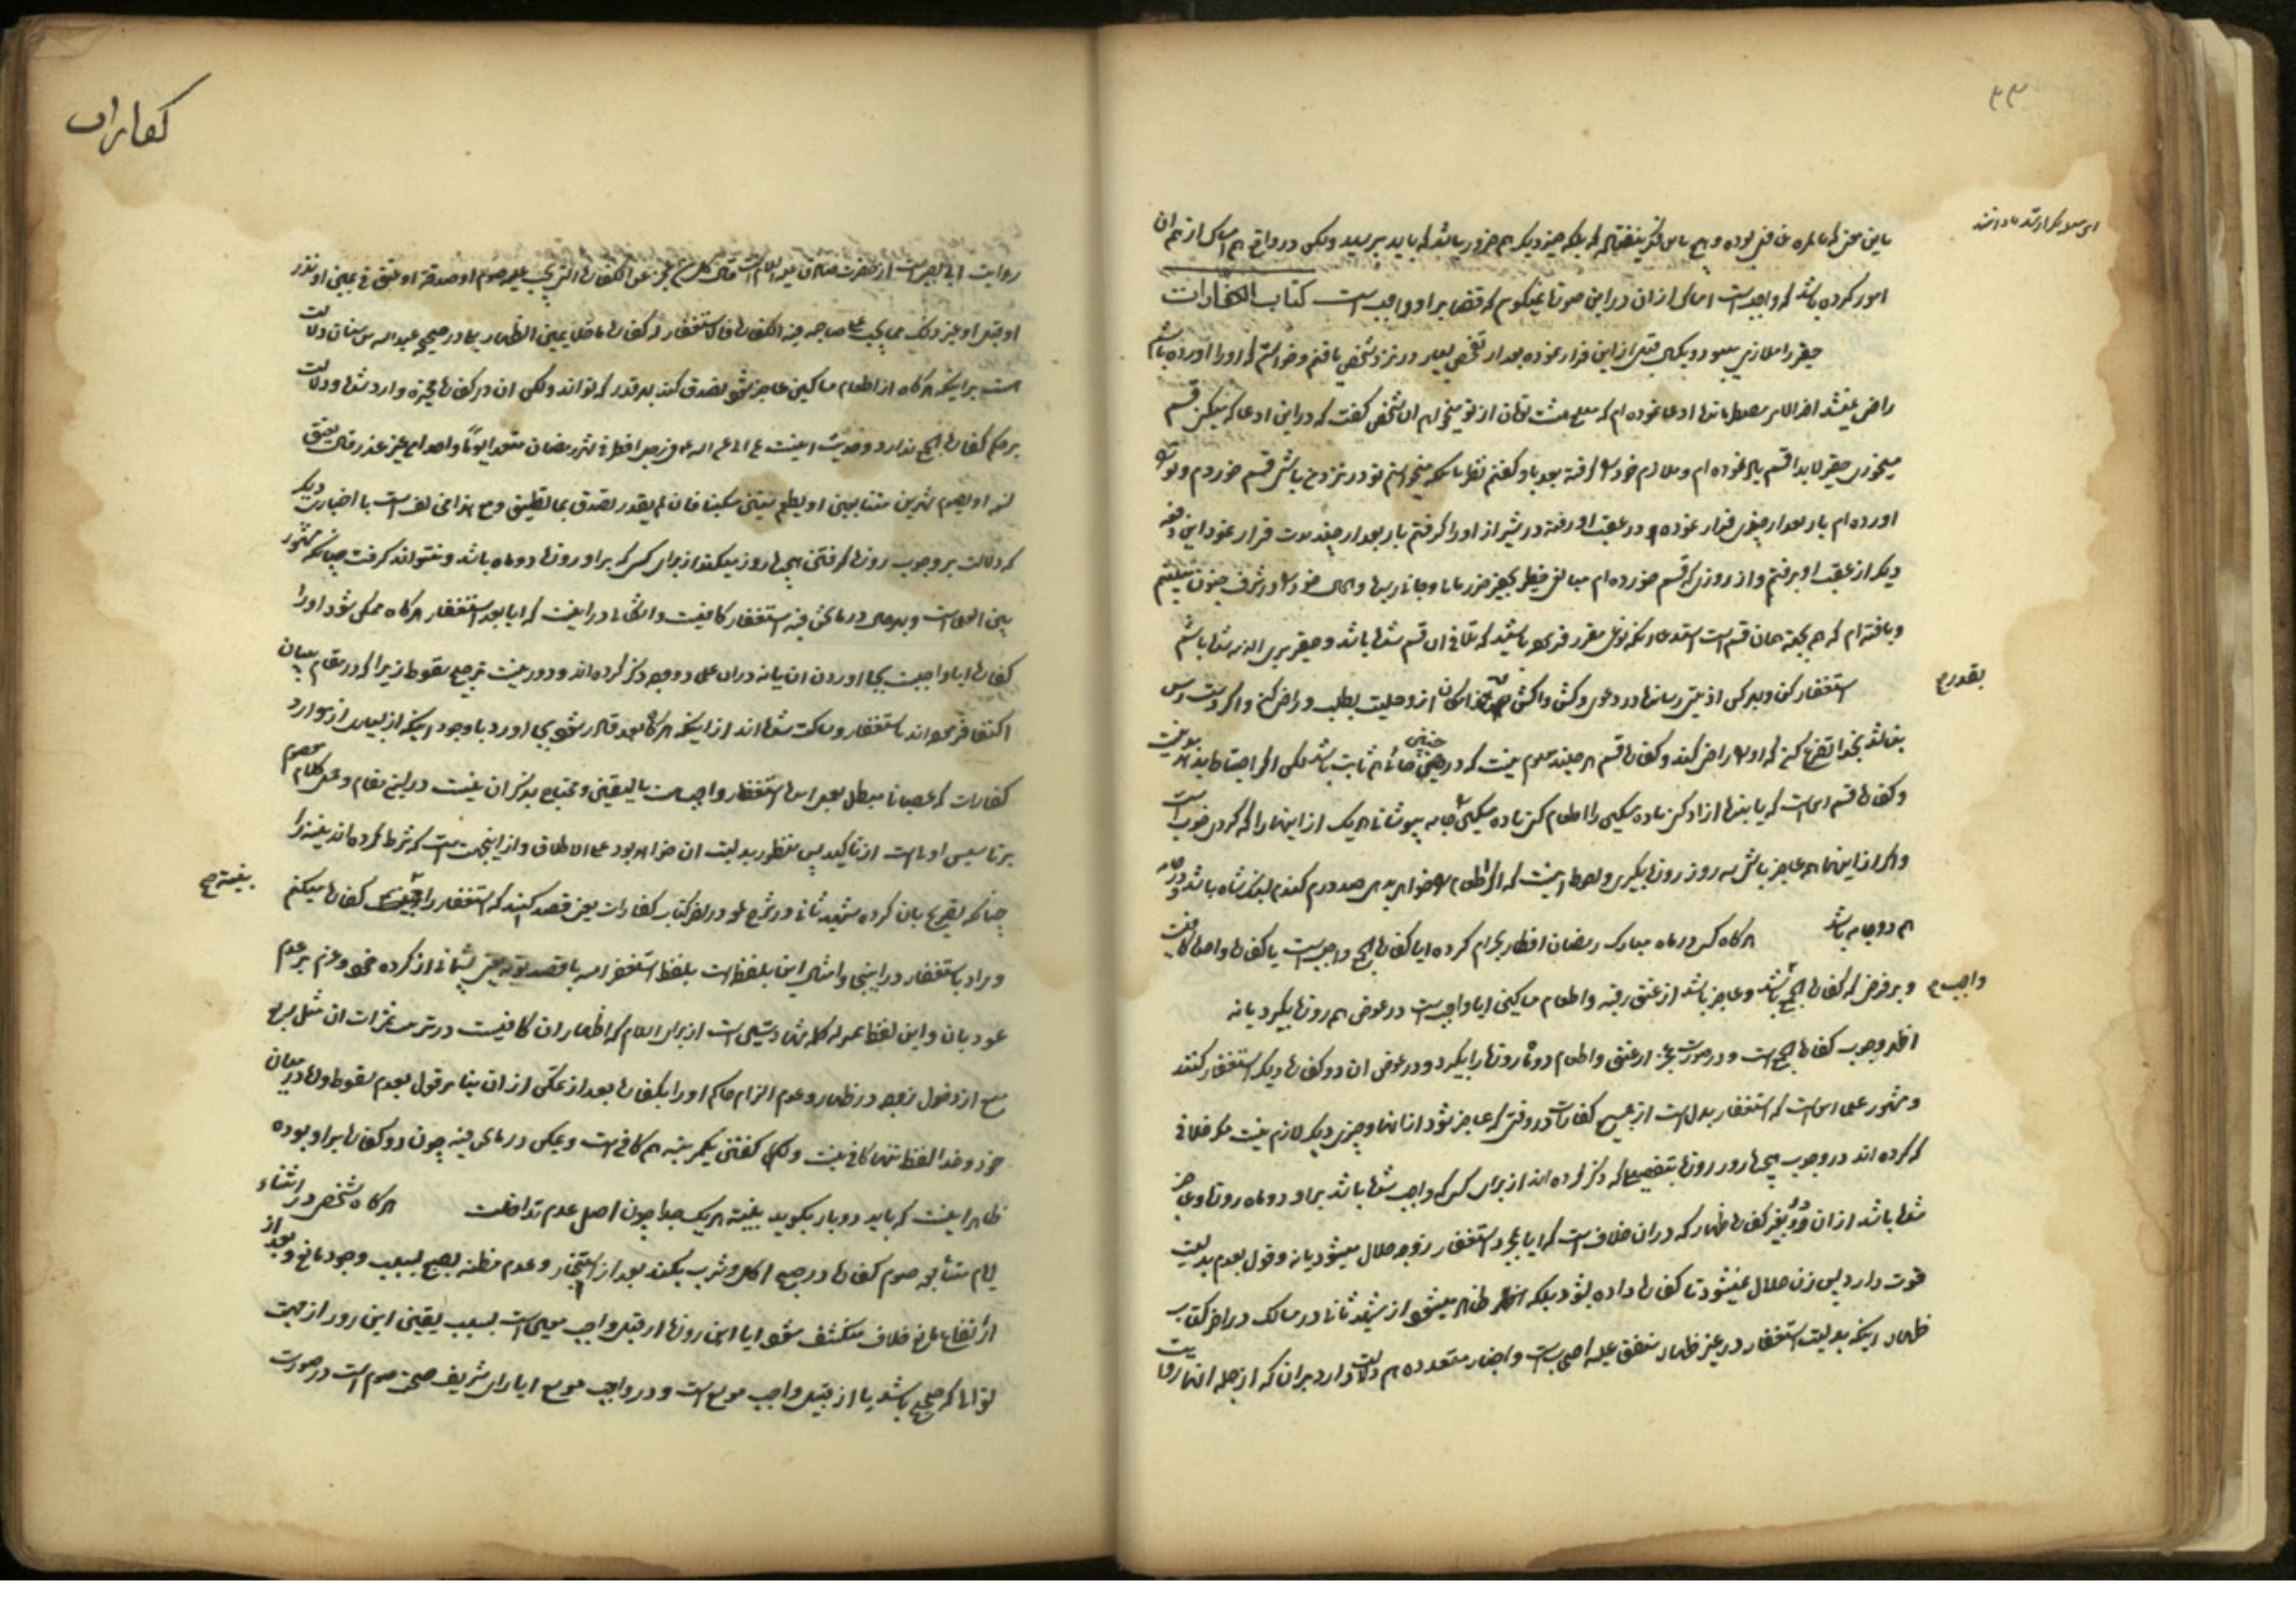 ۴۳
امور کرده باشد که واجبست امساک از آن در این صورت نمیگویم که قضا بر او واجبست کتاب الکفارات
حقیر را ملازمی بود و یکسال قبل از این فرار نموده بعد از تفحص بسیار در نزد شخصی یافتم و خواستم که او را آورده باشم
راضی نمیشد آخر الامر ادعا نموده ام که مبلغ هشت تومان از تو میخواهم آن شخص گفت که در این ادعا که میکنی قسم
میخوری حقیر لابدا قسم یاد نموده ام و ملازم خود را گرفته بعد باو گفتم نظر باینکه میخواستم تو در نزد من باشی قسم خوردم و تو را
آورده ام باز بعد از چندی فرار نموده و در عقب او رفته در شیراز او را گرفتم باز بعد از چند مدت فرار نمود این دفعه
دیگر از عقب او نرفتم و از روزی که قسم خورده ام مبالغی خطیر بحقیر ضرر مالی و جانی رسیده
و یافته ام که هم بجهة همان قسم است استدعا آنکه نوعی مقرر فرموده باشید که تلافی آن قسم شده باشد و حقیر بری الذمه شده باشم
استغفار کن و بهر کس اذیتی رسانده در دعوی و کش و اکش از او حلیت بطلب و راضی کن و اگر دست رس
بقدر ح
نباشد بخدا تضرع کن که او را راضی کند و کفاره قسم هر چند معلوم نیست که در چنین جائی هم ثابت باشد لکن اگر احتیاطا بدهد بد نیست
و کفاره قسم این است که یا بنده آزاد کن یا ده مسکین را اطعام کن یا ده مسکین را جامه بپوشان هر یک از اینها را که کردی خوبست
و اگر از این ها هم عاجز باشی سه روز روزه بگیری و احوط اینست که اگر اطعام را خواهی بدهی صد درم گندم بوزن شاه باشد و جامه
هم دو جامه باشد هرگاه کسی در ماه مبارک رمضان افطار بحرام کرده آیا کفاره جمع واجبست یا کفاره واحده کافیست
و بر فرض که کفاره جمع باشد و عاجز باشد از عتق رقبه و اطعام مساکین آیا واجبست در عوض هم روزه بگیرد یا نه
واجب ح
اظهر وجوب کفاره جمع است و در صورت عجز از عتق و اطعام دو ماه روزه را بگیرد و در عوض آن دو کفاره دیگر استغفار کنند
و مشهور علما این است که استغفار بدل است از جمیع کفارات در وقتی که عاجز شود از آنها و چیزی دیگر لازم نیست مگر خلافی
که کرده اند در وجوب هیجده روز روزه بتفصیلی که ذکر کرده اند از برای کسی که واجب شده باشد بر او دو ماه روزه و عاجز
شده باشد از آن و بغیر کفاره ظهار که در آن خلافست که آیا بمجرد استغفار زوجه حلال میشود یا نه و قول بعدم بدلیت
قوت دارد پس زن حلال نمیشود تا کفاره داده بشود بلکه ظاهر میشود از شهید ثانی در مسالک در آخر کتاب
ظهار اینکه بدلیت استغفار در غیر ظهار متفق علیه اصحابست و اخبار متعدده هم دلالت دارد بر آن که از جمله آنها روایت
کفارات
روایت ابی بصیر است از حضرت صادق علیه السلام قال کل من عجز عن الکفارة التی تجب علیه صوم او صدقة او عتق فی یمین او نذر
او قتل او غیر ذلک مما یجب علی صاحبه فیه الکفارة فالاستغفار له کفارة ما خلا یمین الظهار بلی در صحیحه عبدالله بن سنان دلالت
است بر اینکه هرگاه از اطعام مساکین عاجز شود تصدق کند بهر قدر که تواند ولکن آن در کفاره مخیره وارد شده و دلالت
بر حکم کفاره جمع ندارد و حدیث اینست عن ابی عبدالله فی رجل افطر فی شهر رمضان متعمدا یوما واحدا من غیر عذر قال یعتق
نسمة او یصوم شهرین متتابعین او یطعم ستین مسکینا فان لم یقدر تصدق بما یطیق و مع هذا مخالف است با اخبار دیگر
که دلالت بر وجوب روزه گرفتن هیجده روز میکند از برای کسی که بر او روزه دو ماه باشد و نتواند گرفت چنانکه مشهور
بین العلماست و بهر حال در ما نحن فیه استغفار کافیست و اشکال در اینست که آیا بعد استغفار هرگاه ممکن شود او را
کفاره آیا واجبست بجا آوردن آن یا نه در آن علما دو وجه ذکر کرده اند و دور نیست ترجیح سقوط زیرا که در مقام بیان
اکتفا فرموده اند باستغفار و ساکت شده اند از اینکه هرگاه بعد قادر شود بجا آورد با وجود اینکه از بسیاری از موارد
کفارات که عصیانا مبطل بعمل آمده استغفار واجب است بالیقین و محتاج بذکر آن نیست در این مقام و حمل کلام معصوم
بر تاسیس اولی است از تاکید پس منظور بدلیت آن خواهد بود علی الاطلاق و از اینجهت است که شرط کرده اند نیت را
بنیت ح
چنانکه تصریح بآن کرده شهید ثانی در شرح لمعه در آخر کتاب کفارات یعنی قصد کنند که استغفار را کفاره میکنم
و مراد باستغفار در اینجا و امثال این بلفظ است بلفظ استغفر الله با قصد توبه یعنی پشیمانی از کرده خود و عزم بر عدم
عود بآن و این لفظ بمنزله کلمه شهادتین است از برای اسلام که اظهار آن کافیست در ترتب ثمرات آن مثل
منع از دخول زوجه در ظهار و عدم الزام حاکم او را بکفاره بعد از تمکن از آن بنا بر قول بعدم سقوط و اما در میان
خود و خدا لفظ تنها کافی نیست و لکن گفتن یکمرتبه هم کافی است و لیکن در ما نحن فیه چون دو کفاره بر او بوده
ظاهر اینست که باید دو بار بگوید بنیت هر یک جدا چون اصل عدم تداخلست هرگاه شخصی در اثناء
ایام متتابعه صوم کفاره در صبح اکل و شرب بکند بعد از استخبار و عدم مظنه بصبح بسبب وجود مانع و بعد از
ارتفاع مانع خلاف منکشف شود آیا این روزه از قبیل واجب معین است بسبب تعین این روز از جهت
توالی که صحیح باشد یا از قبیل واجب موسع است و در واجب موسع آیا رای شریف صحت صوم است در صورت